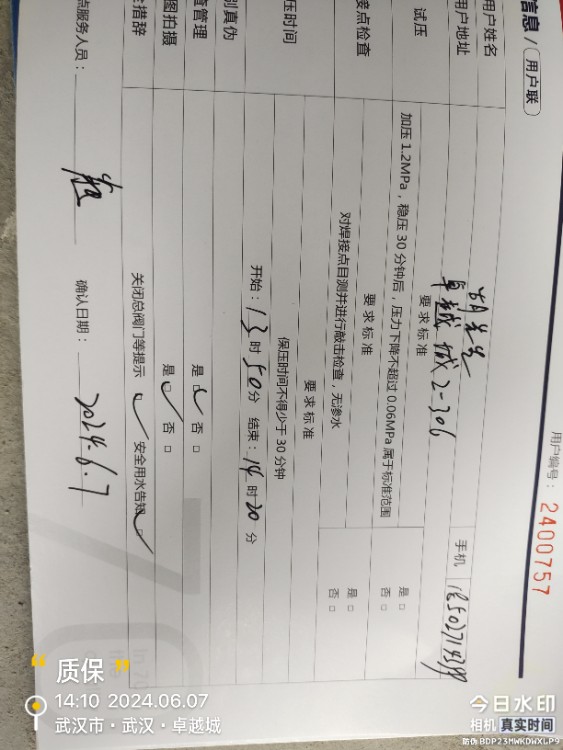 信息 / 用户联
用户编号：2400757
用户姓名 胡先生 手机
用户地址 卓越城2-306
试压 要求标准
加压 1.2MPa，稳压 30 分钟后，压力下降不超过 0.06MPa 属于标准范围 是 □ 否 □
接点检查 要求标准
对焊接点目测并进行敲击检查，无渗水 是 □ 否 □
压时间 要求标准
保压时间不得少于 30 分钟
开始：13 时 50 分 结束：14 时 20 分
别真伪 是 □ 否 □
管管理
图拍摄 是 □ 否 □
措辞 关闭总阀门等提示 □ 安全用水告知 □
点服务人员： 确认日期：2024.6.7
“质保”
14:10 2024.06.07
武汉市·武汉·卓越城
今日水印
相机 真实时间
防伪 BDP23MWKDWXLP9